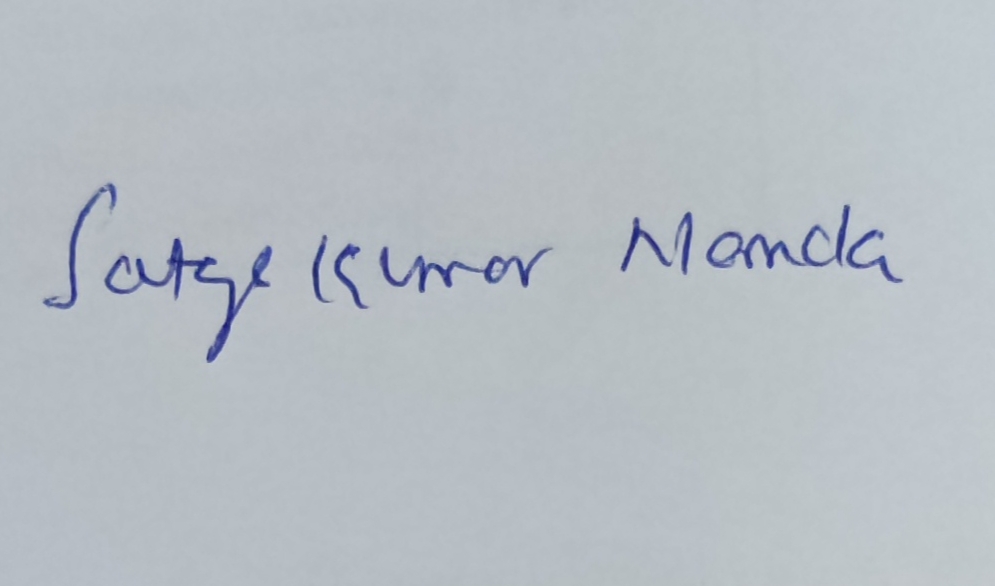 Satya Kumar Nanda